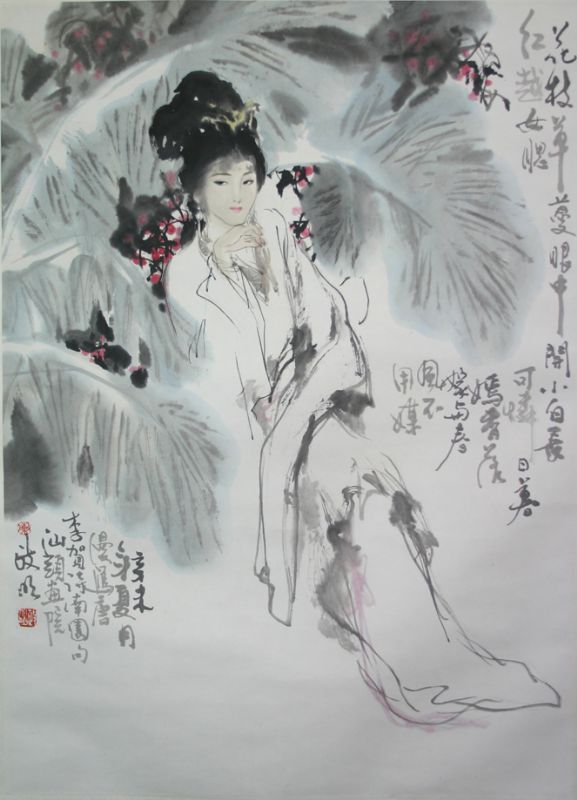 花枝草蔓眼中開小白長
红越女腮
可憐日暮
嫣香落
嫁与春
風不
用媒
辛未
年夏月
漫寫唐
李賀詩南園句
汕頭畫院